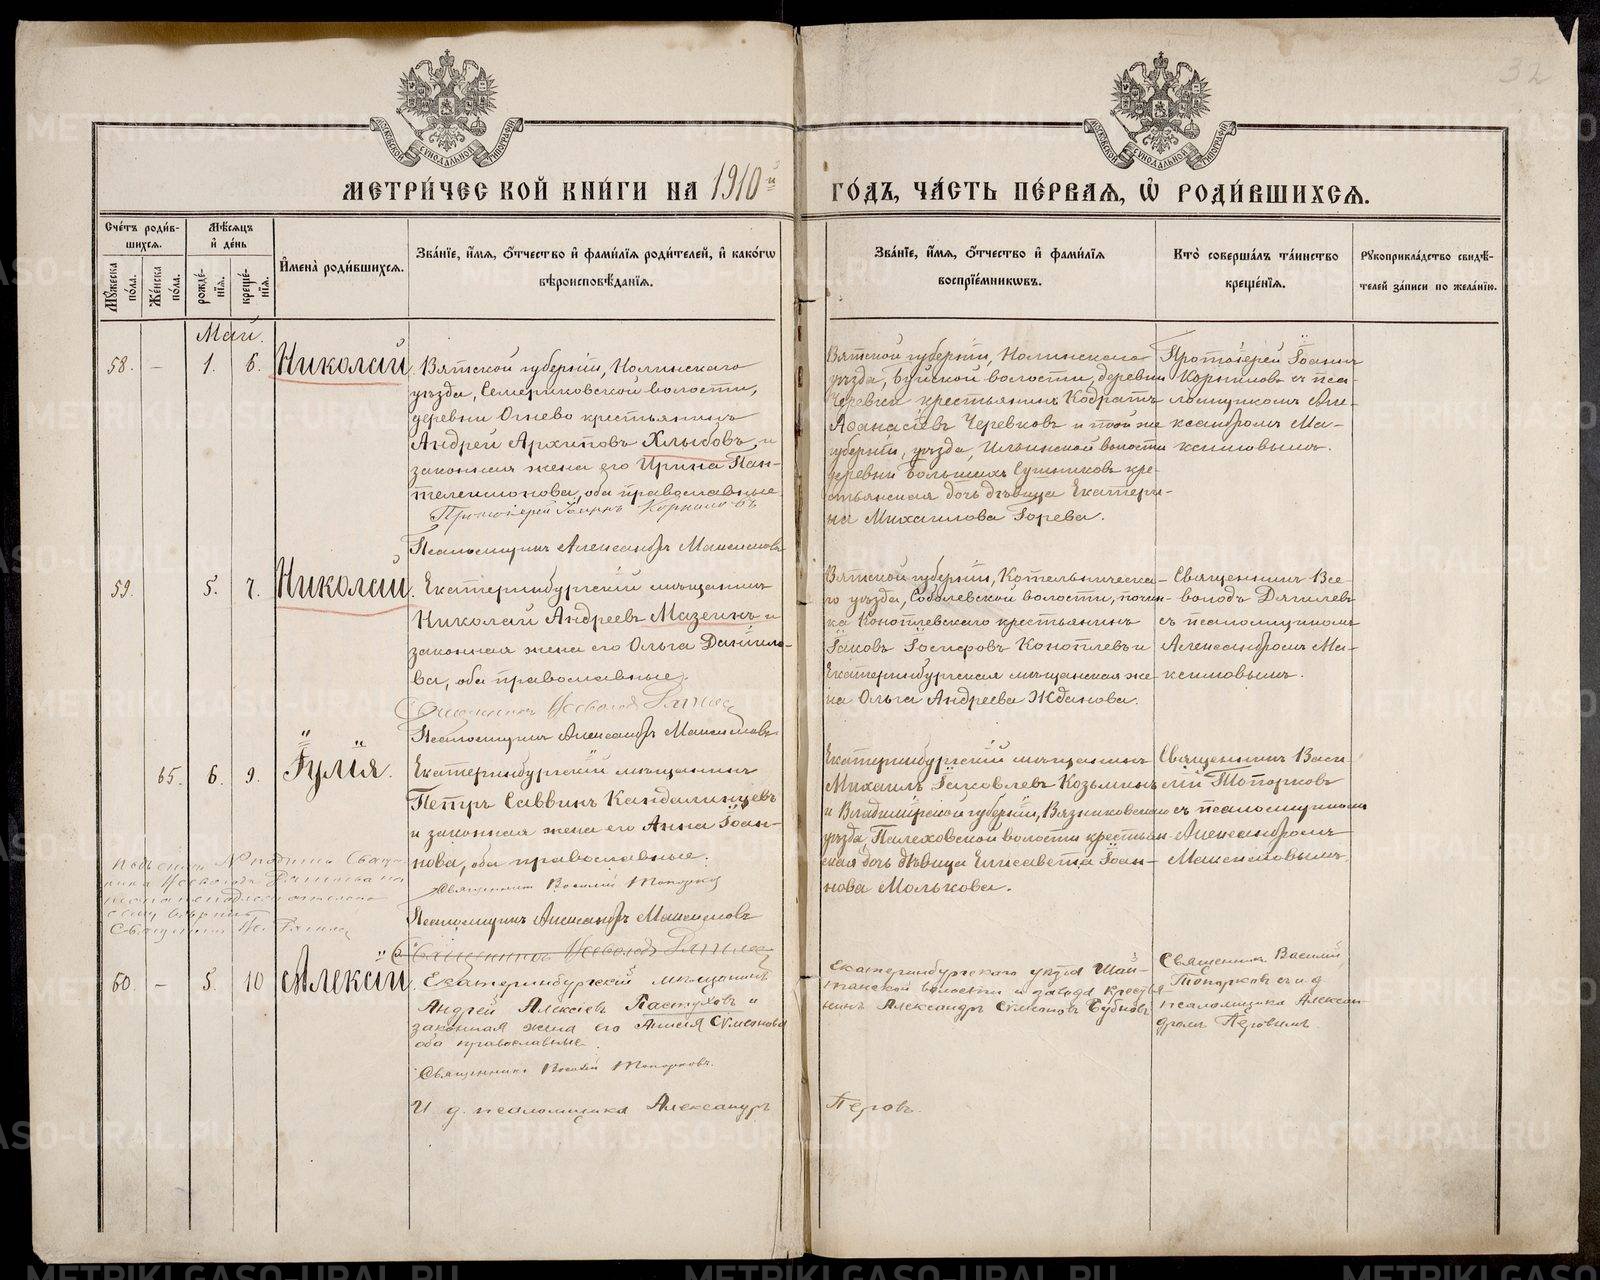 32
МОСКОВСКОЙ СѴНОДАЛЬНОЙ ТИПОГРАФІИ
МОСКОВСКОЙ СѴНОДАЛЬНОЙ ТИПОГРАФІИ
МЕТРИ́ЧЕСКОЙ КНИ́ГИ НА 1910й ГО́ДЪ, ЧА́СТЬ ПЕ́РВАЯ, Ѡ҆ РОДИ́ВШИХСѦ.
Счéтъ роди́в-
шихся.
Мꙋ́жеска пóла.
Жéнска пóла.
Мѣ́сѧцъ
и҆ дéнь
рождé-
нїѧ.
крещé-
нїѧ.
И҆менà роди́вшихсѧ.
Звáнїе, и҆́мѧ, ѻ҆́тчество и҆ фами́лїѧ роди́телей, и҆ какóгѡ
вѣроисповѣ́данїѧ.
Звáнїе, и҆́мѧ, ѻ҆́тчество и҆ фами́лїѧ
воспрїéмникѡвъ.
Кто̀ совершáлъ тáинство
крещéнїѧ.
Рꙋкоприклáдство свидѣ́-
телей зáписи по желáнїю.
Май.
58. – 1. 6. Николай
Вятской губерніи, Нолинскаго
уѣзда, Семериковской волости,
деревни Огнево крестьянинъ
Андрей Архиповъ Хлыбовъ, и
законная жена его Ирина Пан-
телеимонова, оба православные
Протоіерей Іоаннъ Корниловъ
Псаломщикъ Александръ Максимовъ
Вятской губерніи, Нолинскаго
уѣзда, Буйской волости, деревни
Черевки крестьянинъ Кодратъ
Аѳанасіевъ Черевковъ и той же
губерніи, уѣзда, Ильинской волости
деревни Большихъ Сушниковъ кре-
стьянская дочь дѣвица Екатери-
на Михаилова Горева.
Протоіерей Іоаннъ
Корниловъ съ пса-
ломщикомъ Але-
ксандромъ Ма-
ксимовымъ.
59. 5. 7. Николай.
Екатеринбургскій мѣщанинъ
Николай Андреевъ Мазеинъ и
законная жена его Ольга Даніило-
ва, оба православные.
Священникъ Всеволодъ Дягилевъ
Псаломщикъ Александръ Максимовъ
Вятской губерніи, Котельническа-
го уѣзда, Соболевской волости, почин-
ка Коноплевскаго крестьянинъ
Іаковъ Іосифовъ Коноплевъ и
Екатеринбургская мѣщанская же-
на Ольга Андреева Жданова.
Священникъ Все-
володъ Дягилевъ
съ псаломщикомъ
Александромъ Ма-
ксимовымъ.
65. 6. 9. Іулія.
Екатеринбургскій мѣщанинъ
Петръ Саввинъ Кандалинцевъ
и законная жена его Анна Іоан-
нова, оба православные.
Священникъ Василій Топорковъ
Псаломщикъ Александръ Максимовъ
Священникъ Всеволодъ Дягилевъ
Екатеринбургскій мѣщанинъ
Михаилъ Іаковлевъ Козьминъ
и Владимірской губерніи, Вязниковскаго
уѣзда, Палеховской волости крестьян-
ская дочь дѣвица Елисавета Іоан-
нова Молькова.
Священникъ Васи-
лій Топорковъ
съ псаломщикомъ
Александромъ
Максимовымъ.
60. – 5. 10 Алексій
Екатеринбургскій мѣщанинъ
Андрей Алексіевъ Пастуховъ и
законная жена его Анисія Сѵмеонова
оба православные.
Священникъ Василій Топорковъ.
И. д. псаломщика Александръ Перовъ.
Екатеринбургскаго уѣзда Шай-
танской волости и завода кресть-
янинъ Александръ Сѵмеоновъ Бубновъ
Священникъ Василій
Топорковъ съ и. д.
псаломщика Алексан-
дромъ Перовымъ.
METRIKI.GASO-URAL.RU